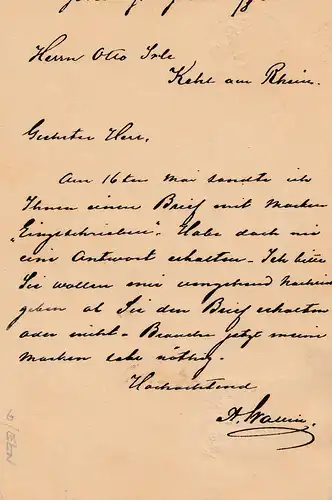 Herrn Otto Irle
Kehl am Rhein.
Geehrter Herr,
Am 16ten Mai sandte ich
Ihnen einen Brief mit Marken
„Eingeschrieben". Habe doch nie
eine Antwort erhalten. Ich bitte
Sie wollen mir umgehend
geben ob Sie den Brief erhalten
oder nicht. Brauche jetzt meine
Marken sehr nöthig.
Hochachtend
A. Wallin.